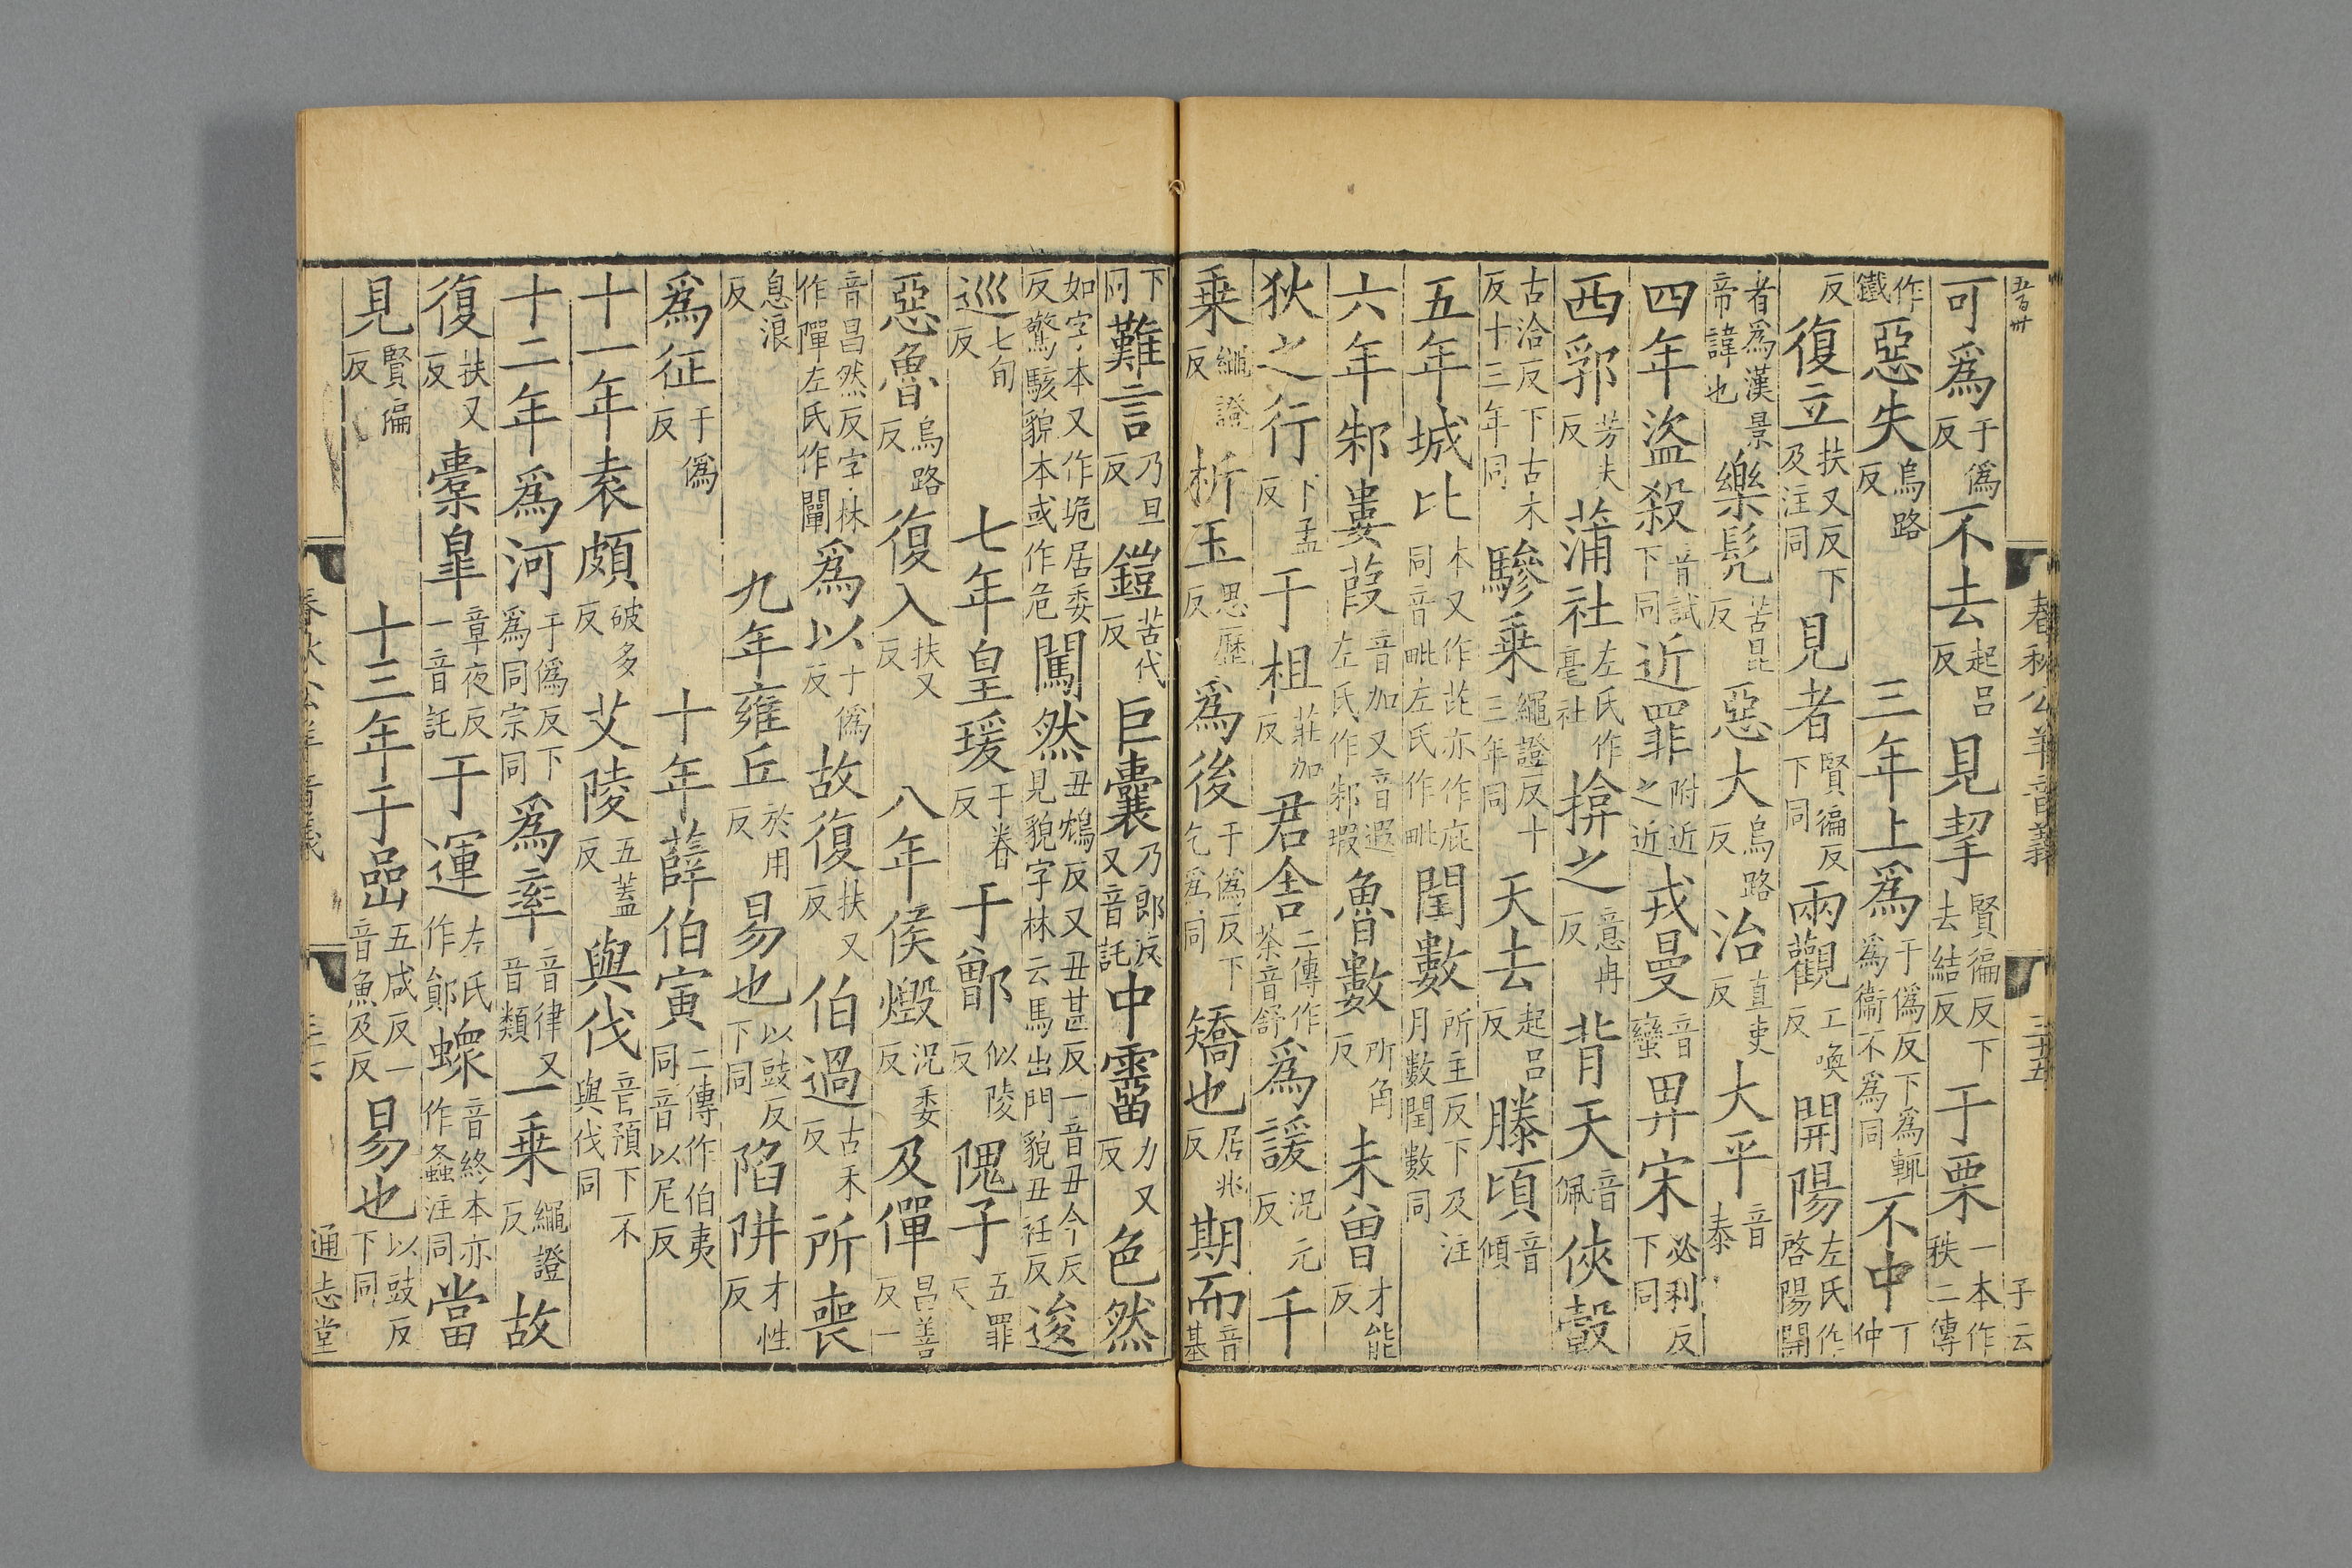 五百卅 春秋公羊音義 三十五 子云
可爲于僞反不去起呂反見挈賢徧反下去結反于栗一本作秩二傳
作鐵惡失烏路反 三年上爲于僞反下爲輒爲衞不爲同不中丁仲
反復立扶又反下及注同見者賢徧反下同兩觀工喚反開陽左氏作啓陽開
者爲漢景帝諱也樂髡苦昆反惡大烏路反治直吏反大平音泰
四年盜殺音試下同近罪附近之近戎曼音蠻畀宋必利反下同
西郛芳夫反蒲社左氏作亳社揜之意冉反背天音佩俠轂
古洽反下古木反十三年同驂乗繩證反十三年同天去起呂反滕頃音傾
五年城比本又作芘亦作庇同音毗左氏作毗閏數所主反下及注月數閏數同
六年邾婁葭音加又音遐左氏作邾瑕魯數所角反未曾才能反
狄之行下孟反于柤莊加反君舍二傳作荼音舒爲諼況元反千
乗繩證反析玉思歷反爲後于僞反下乞爲同矯也居兆反期而音基
下同難言乃旦反鎧苦代反巨囊乃郎反又音託中霤力又反色然
如字本又作垝居委反驚駭貌本或作危闖然丑鴆反又丑甚反一音丑今反見貌字林云馬出門貌丑衽反逡
巡七旬反 七年皇瑗于眷反于鄫似陵反隗子五罪反
惡魯烏路反復入扶又反 八年侯燬況委反及僤昌善反一
音昌然反字林作嘽左氏作闡爲以于僞反故復扶又反伯過古禾反所喪
息浪反 九年雍丘於用反易也以豉反下同陷阱才性反
爲征于僞反 十年薛伯寅二傳作伯夷同音以尼反
十一年袁頗破多反艾陵五蓋反與伐音預下不與伐同
十二年爲河于僞反下爲同宗同爲率音律又音類一乗繩證反故
復扶又反橐皐章夜反一音託于運左氏作鄖䗥音終本亦作螽注同當
見賢徧反 十三年于嵒五咸反一音魚及反易也以豉反下同
春秋公羊音義 三十六 通志堂